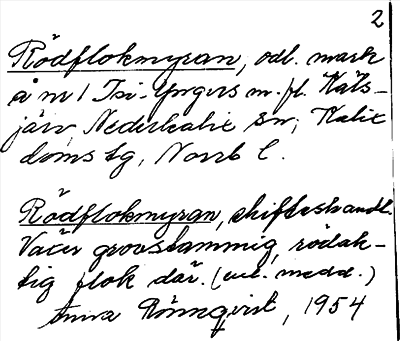 2
Rödflokmyran, odl. mark
å m/ Isi-Yngers m. fl. Räts-
järv, Nederkalix sn, Kalix
doms tg, Norrb l.
Rödflokmyran, skifteshandl.
Växer grovstammig, rödak-
tig flok där. (enl. medd.)
Anna Rönnqvist, 1954